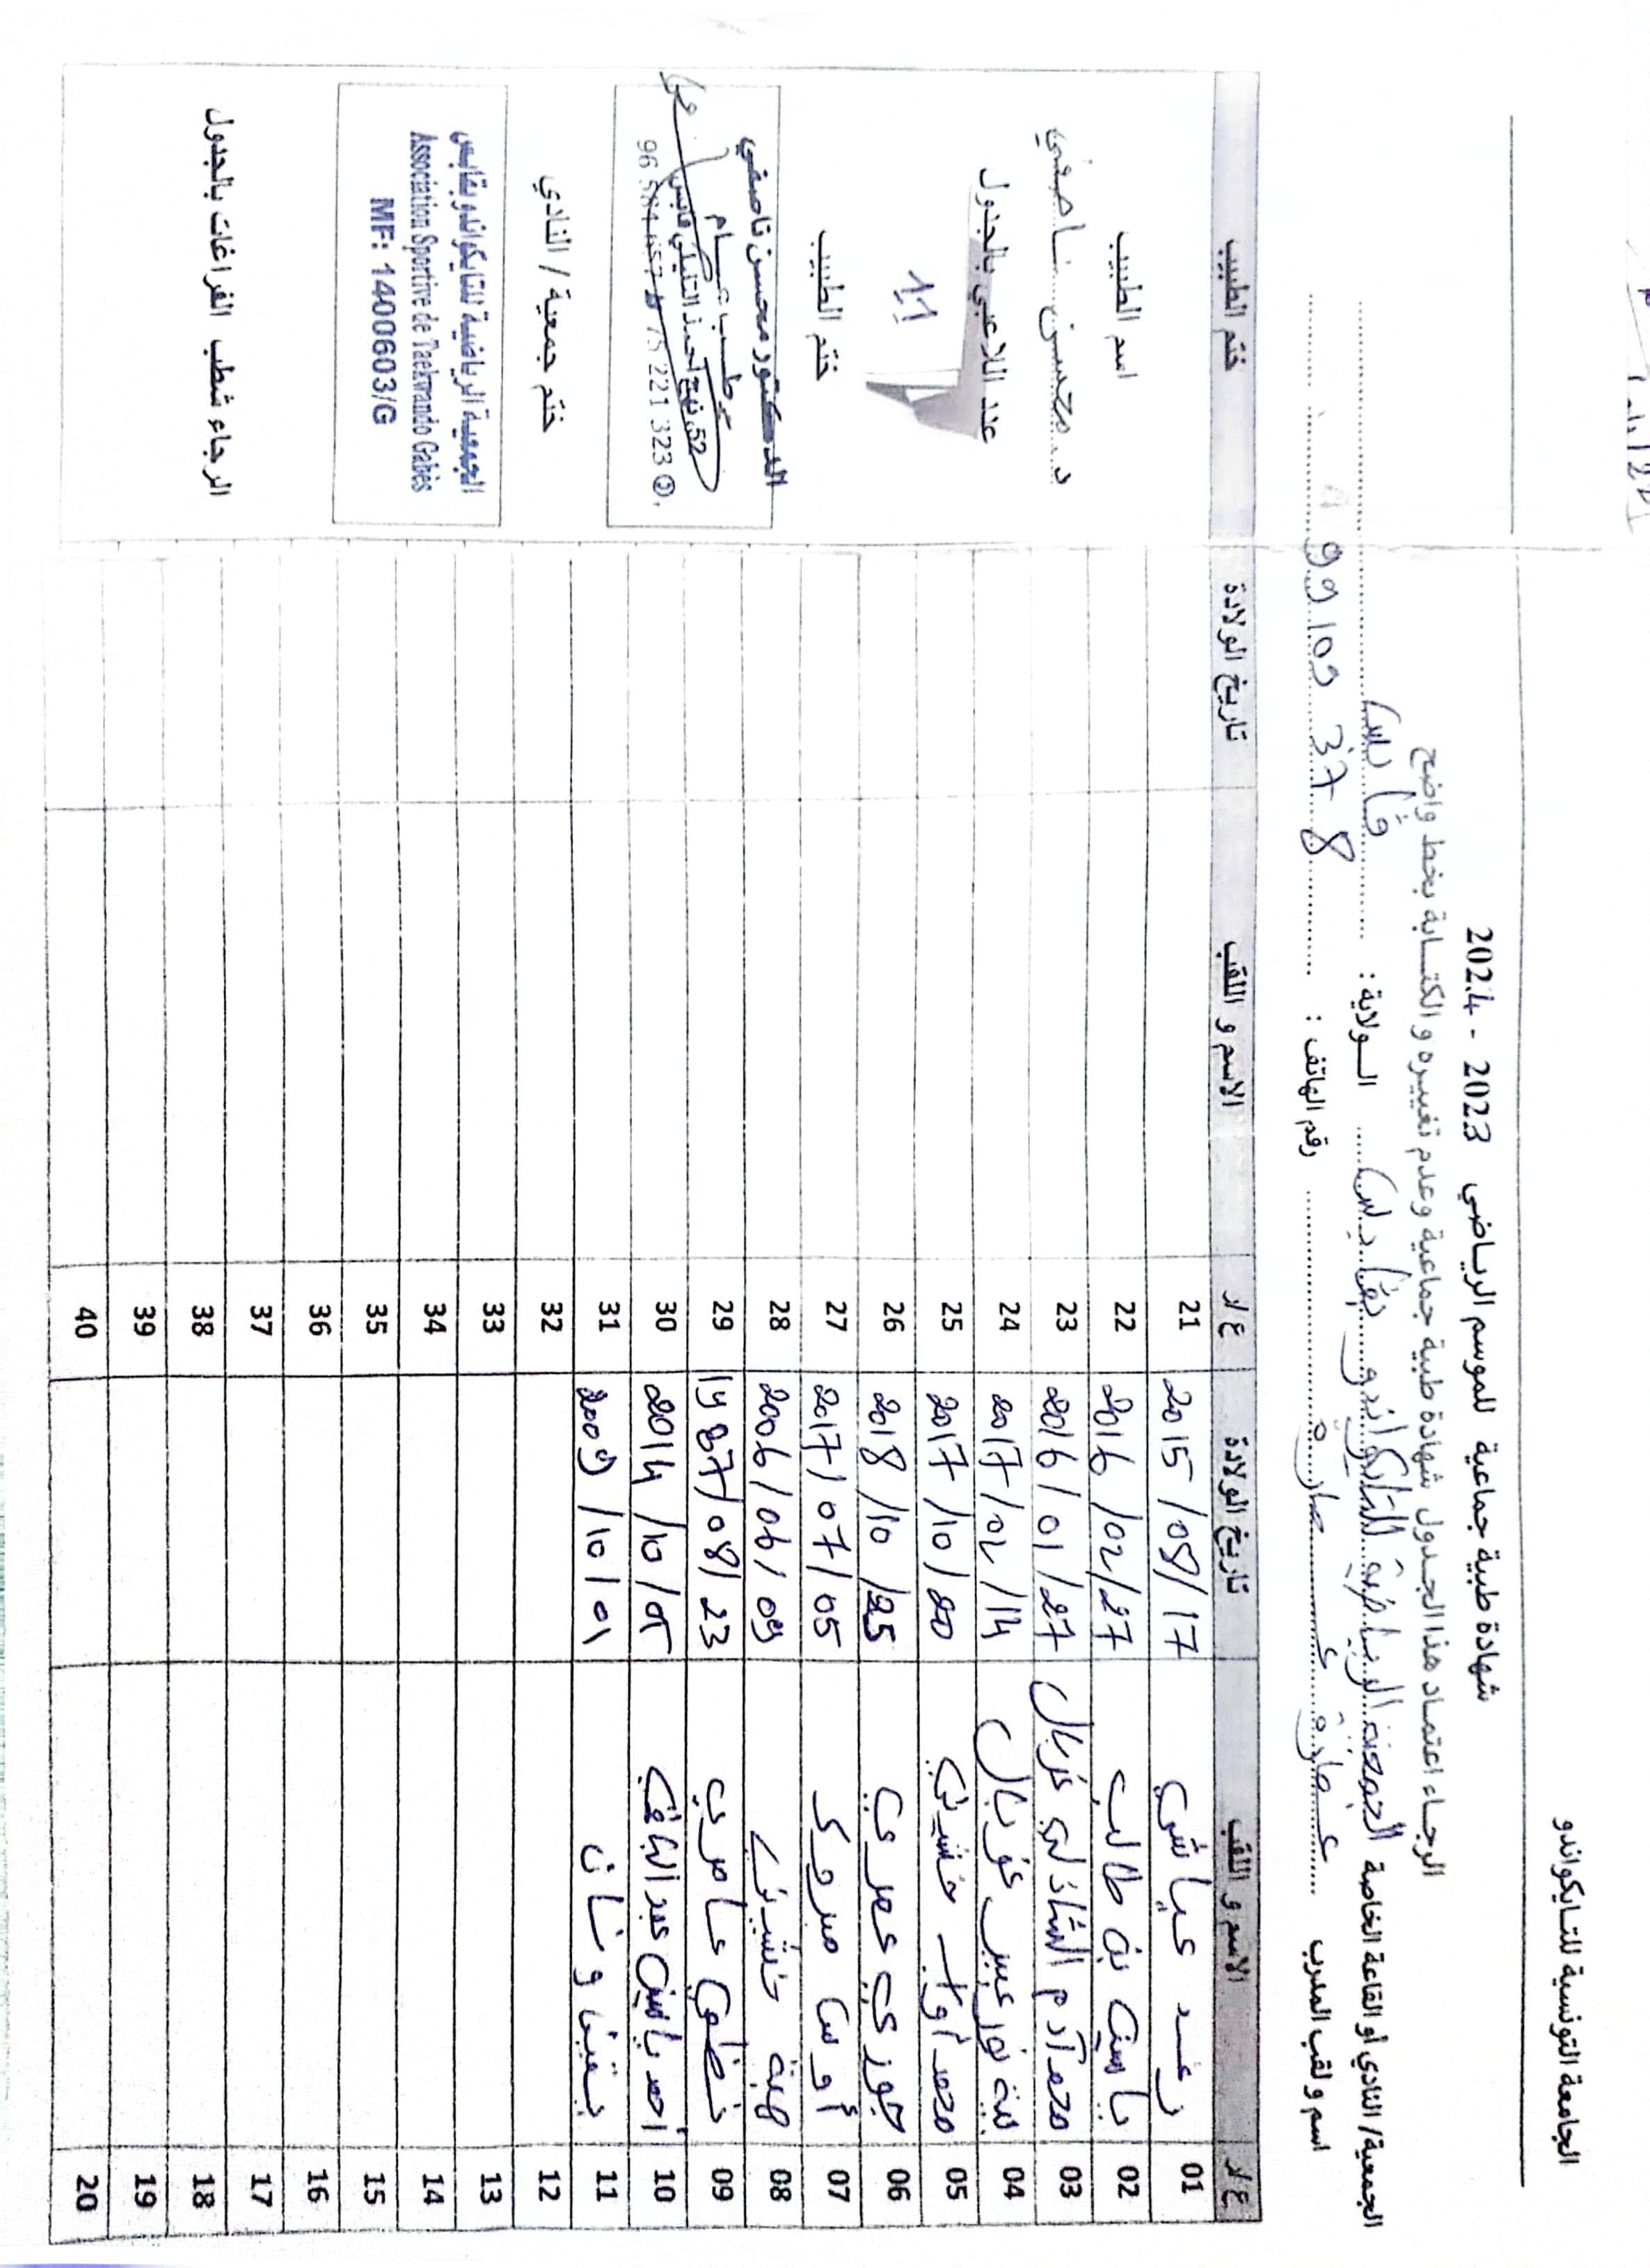 الجامعة التونسية للتايكواندو
شهادة طبية جماعية للموسم الرياضي 2023 - 2024
الرجاء اعتماد هذا الجدول شهادة طبية جماعية وعدم تغييره و الكتابة بخط واضح
الجمعية/ النادي أو القاعة الخاصة الجمعية الرياضية للتايكواندو بقابس الولاية : قابس
اسم و لقب المدرب عمارة عمارة رقم الهاتف : 99 109 378
ع/د الاسم و اللقب تاريخ الولادة ع/د الاسم و اللقب تاريخ الولادة ختم الطبيب
01 رغد عياشي 2015/08/17 21
02 ياسين بن طالب 2016/02/27 22
03 محمد آدم الشاذلي غربال 2016/01/27 23
04 غربال 2017/02/14 24
05 محمد أواب خشيني 2017/10/20 25
06 جوري عمري 2018/10/25 26
07 أوس مبروك 2017/07/05 27
08 هبة 2006/06/09 28
09 عامري 1987/08/23 29
10 أحمد ياسين عبد الباقي 2014/10/05 30
11 2009/10/01 31
12 32
13 33
14 34
15 35
16 36
17 37
18 38
19 39
20 40
اسم الطبيب
د. محسن ناصفي
عدد اللاعبي بالجدول
11
ختم الطبيب
الدكتور محسن ناصفي
طب عام
52 نهج أحمد التليلي قابس
221 323
ختم جمعية / النادي
الجمعية الرياضية للتايكواندو بقابس
Association Sportive de Taekwando Gabès
MF: 1400603/G
الرجاء شطب الفراغات بالجدول